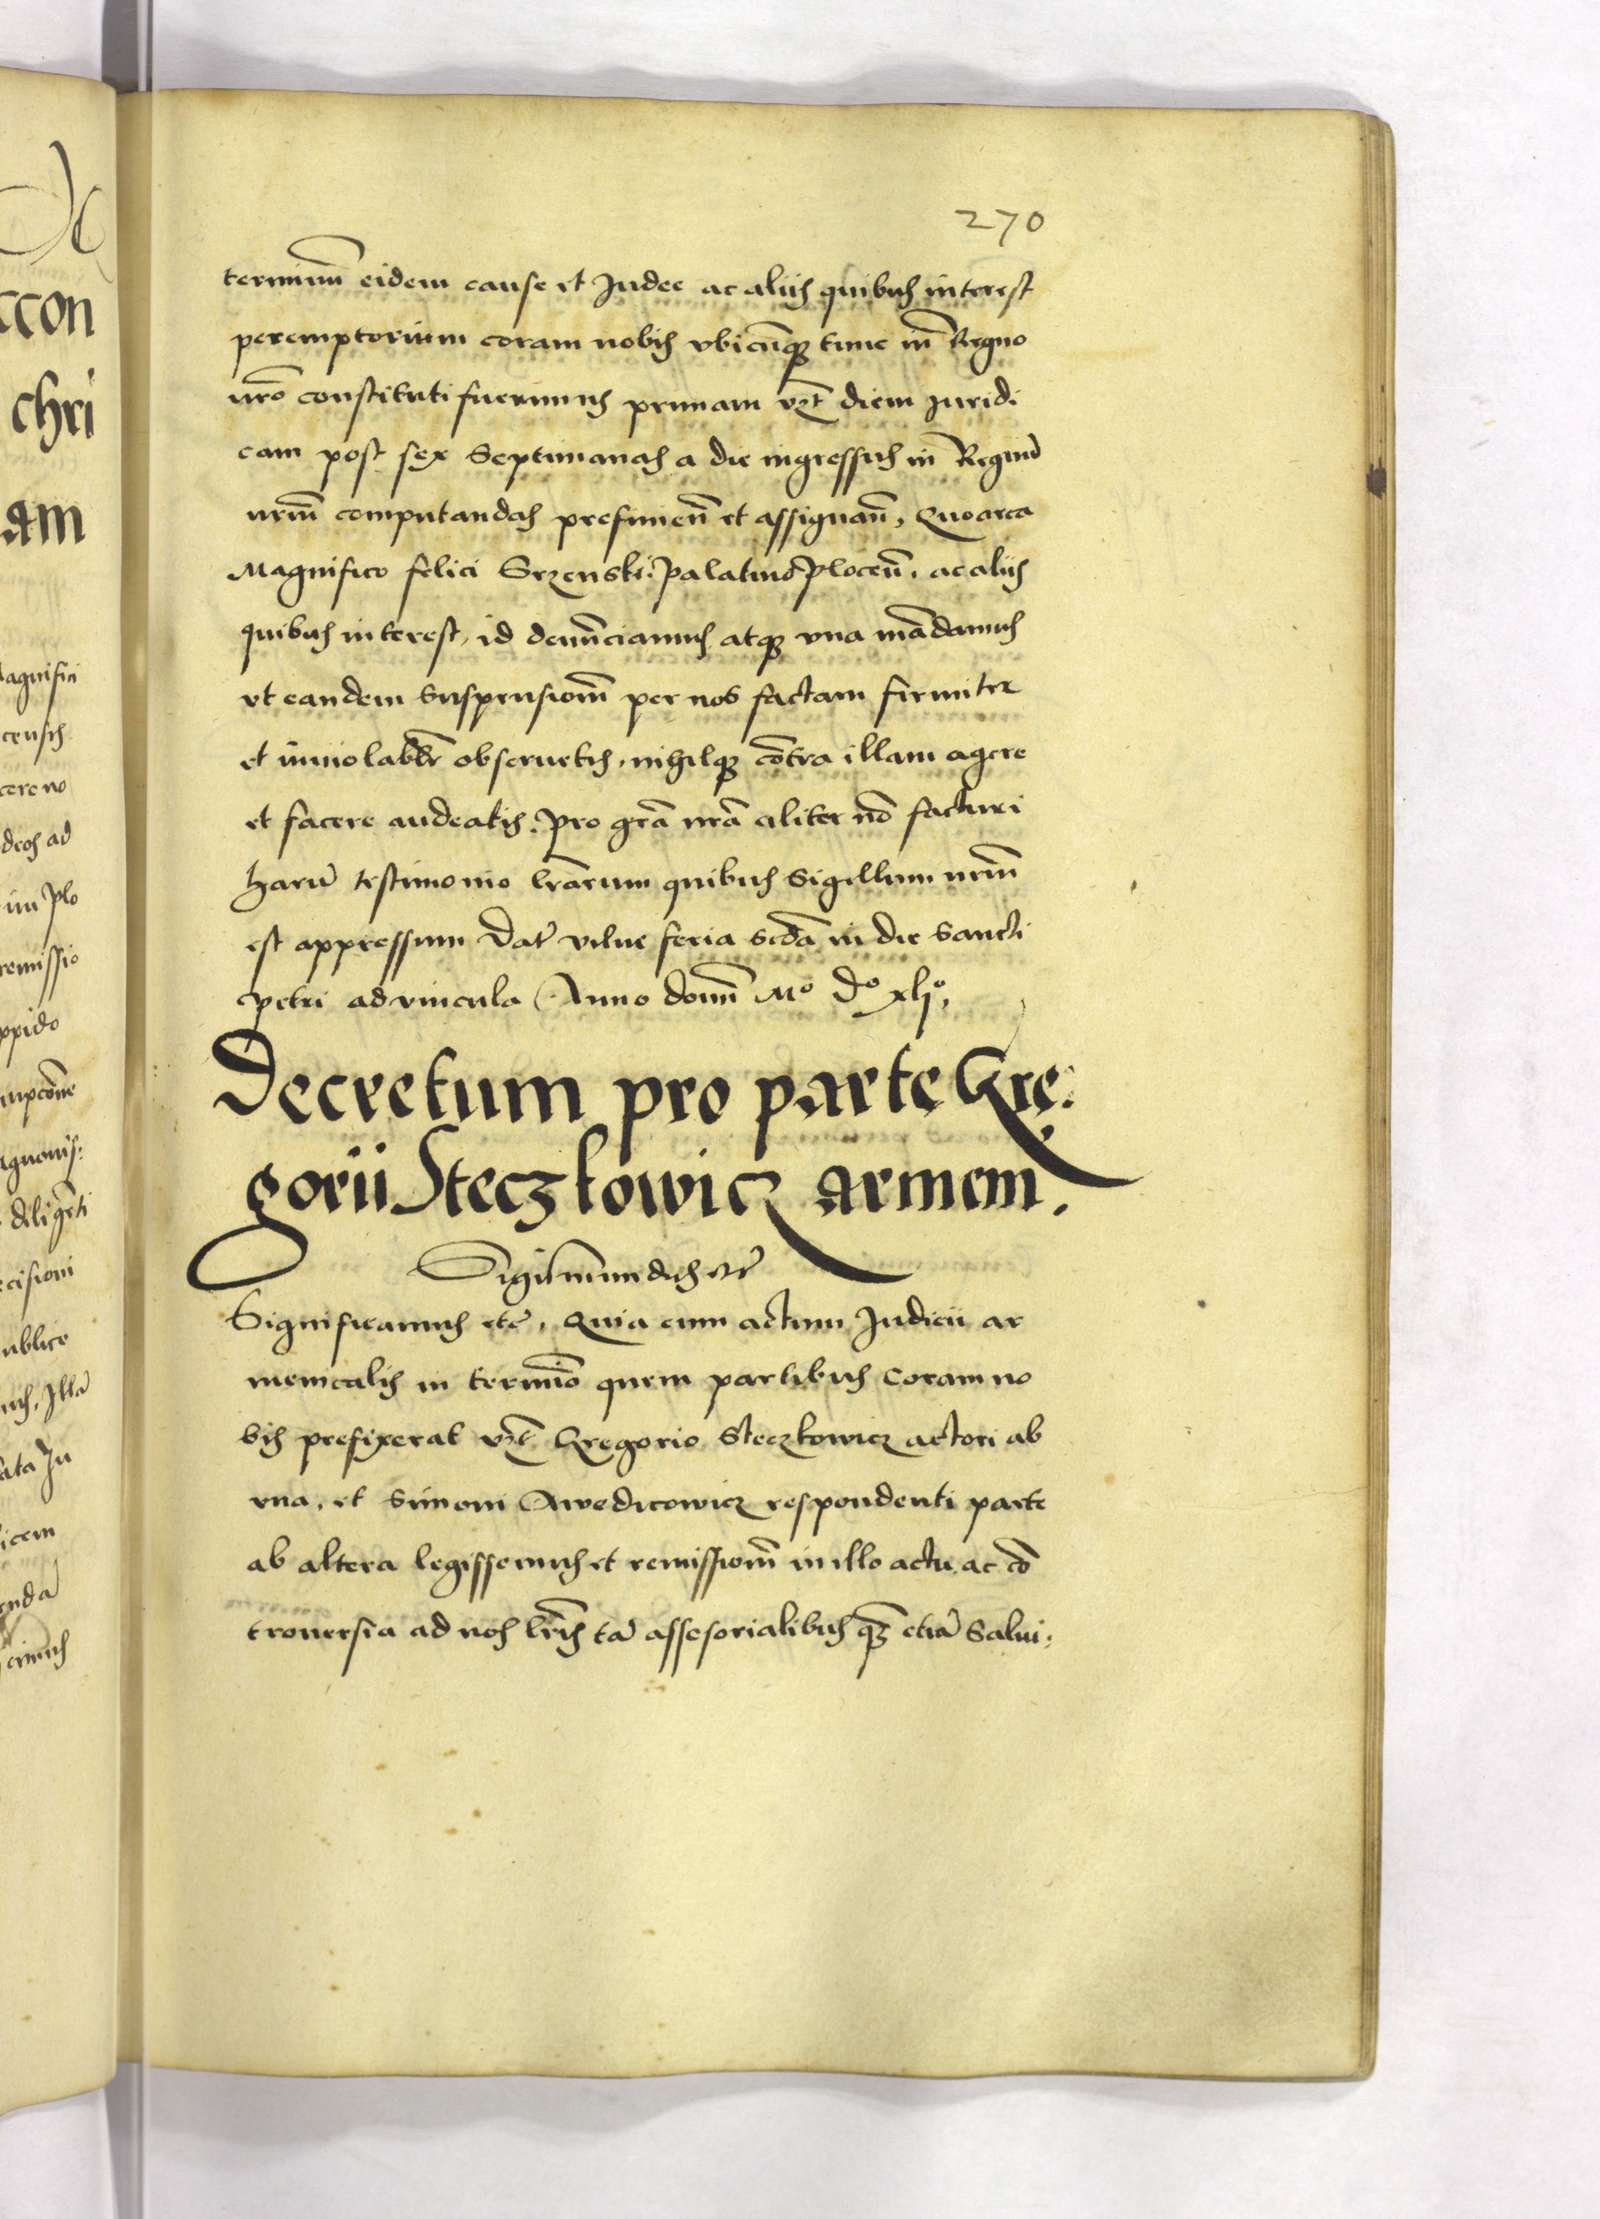 270
terminū eidem cause et Judee ac aliis quibus interest
peremptorium coram nobis vbicūq3 tunc in Regno
nr̃o constituti fuerimus primam vz̃t diem Juridi
cam post sex Septimanas a die ingressus in Regnū
nrm̃ computandas prefinien̄ et assignan̄, Quocirca
Magnifico felici Srzenski: palatino plocen̄. ac aliis
quibus interest, id denūciamus atq3 vna mādamus
vt eandem Suspensionē per nos factam firmiter
et inuiolabl̃r obseruetis, nihilq3 cōtra illam agere
et facere audeatis. pro grã nrã aliter nō facturi
harū testimonio lr̃arum quibus Sigillum nrm̃
est appressum Dat̃ vilne feria scdã in die Sancti
petri ad vincula Anno domī Mº dº xljº,
Decretum pro parte Gre:
gorii Steczkowicz armem.
Sigismundus etc̃
Significamus etc̃, Quia cum actum Judicii ar
menicalis in termīo quem partibus Coram no
bis prefixerat vz̃t Gregorio Steczkowicz actori ab
vna, et Simoni Awedicowicz respondenti parte
ab altera legissemus et remissionē in illo actu, ac cō
trouersia ad nos lr̃is tā assesorialibus q̃3 etiā Salui: